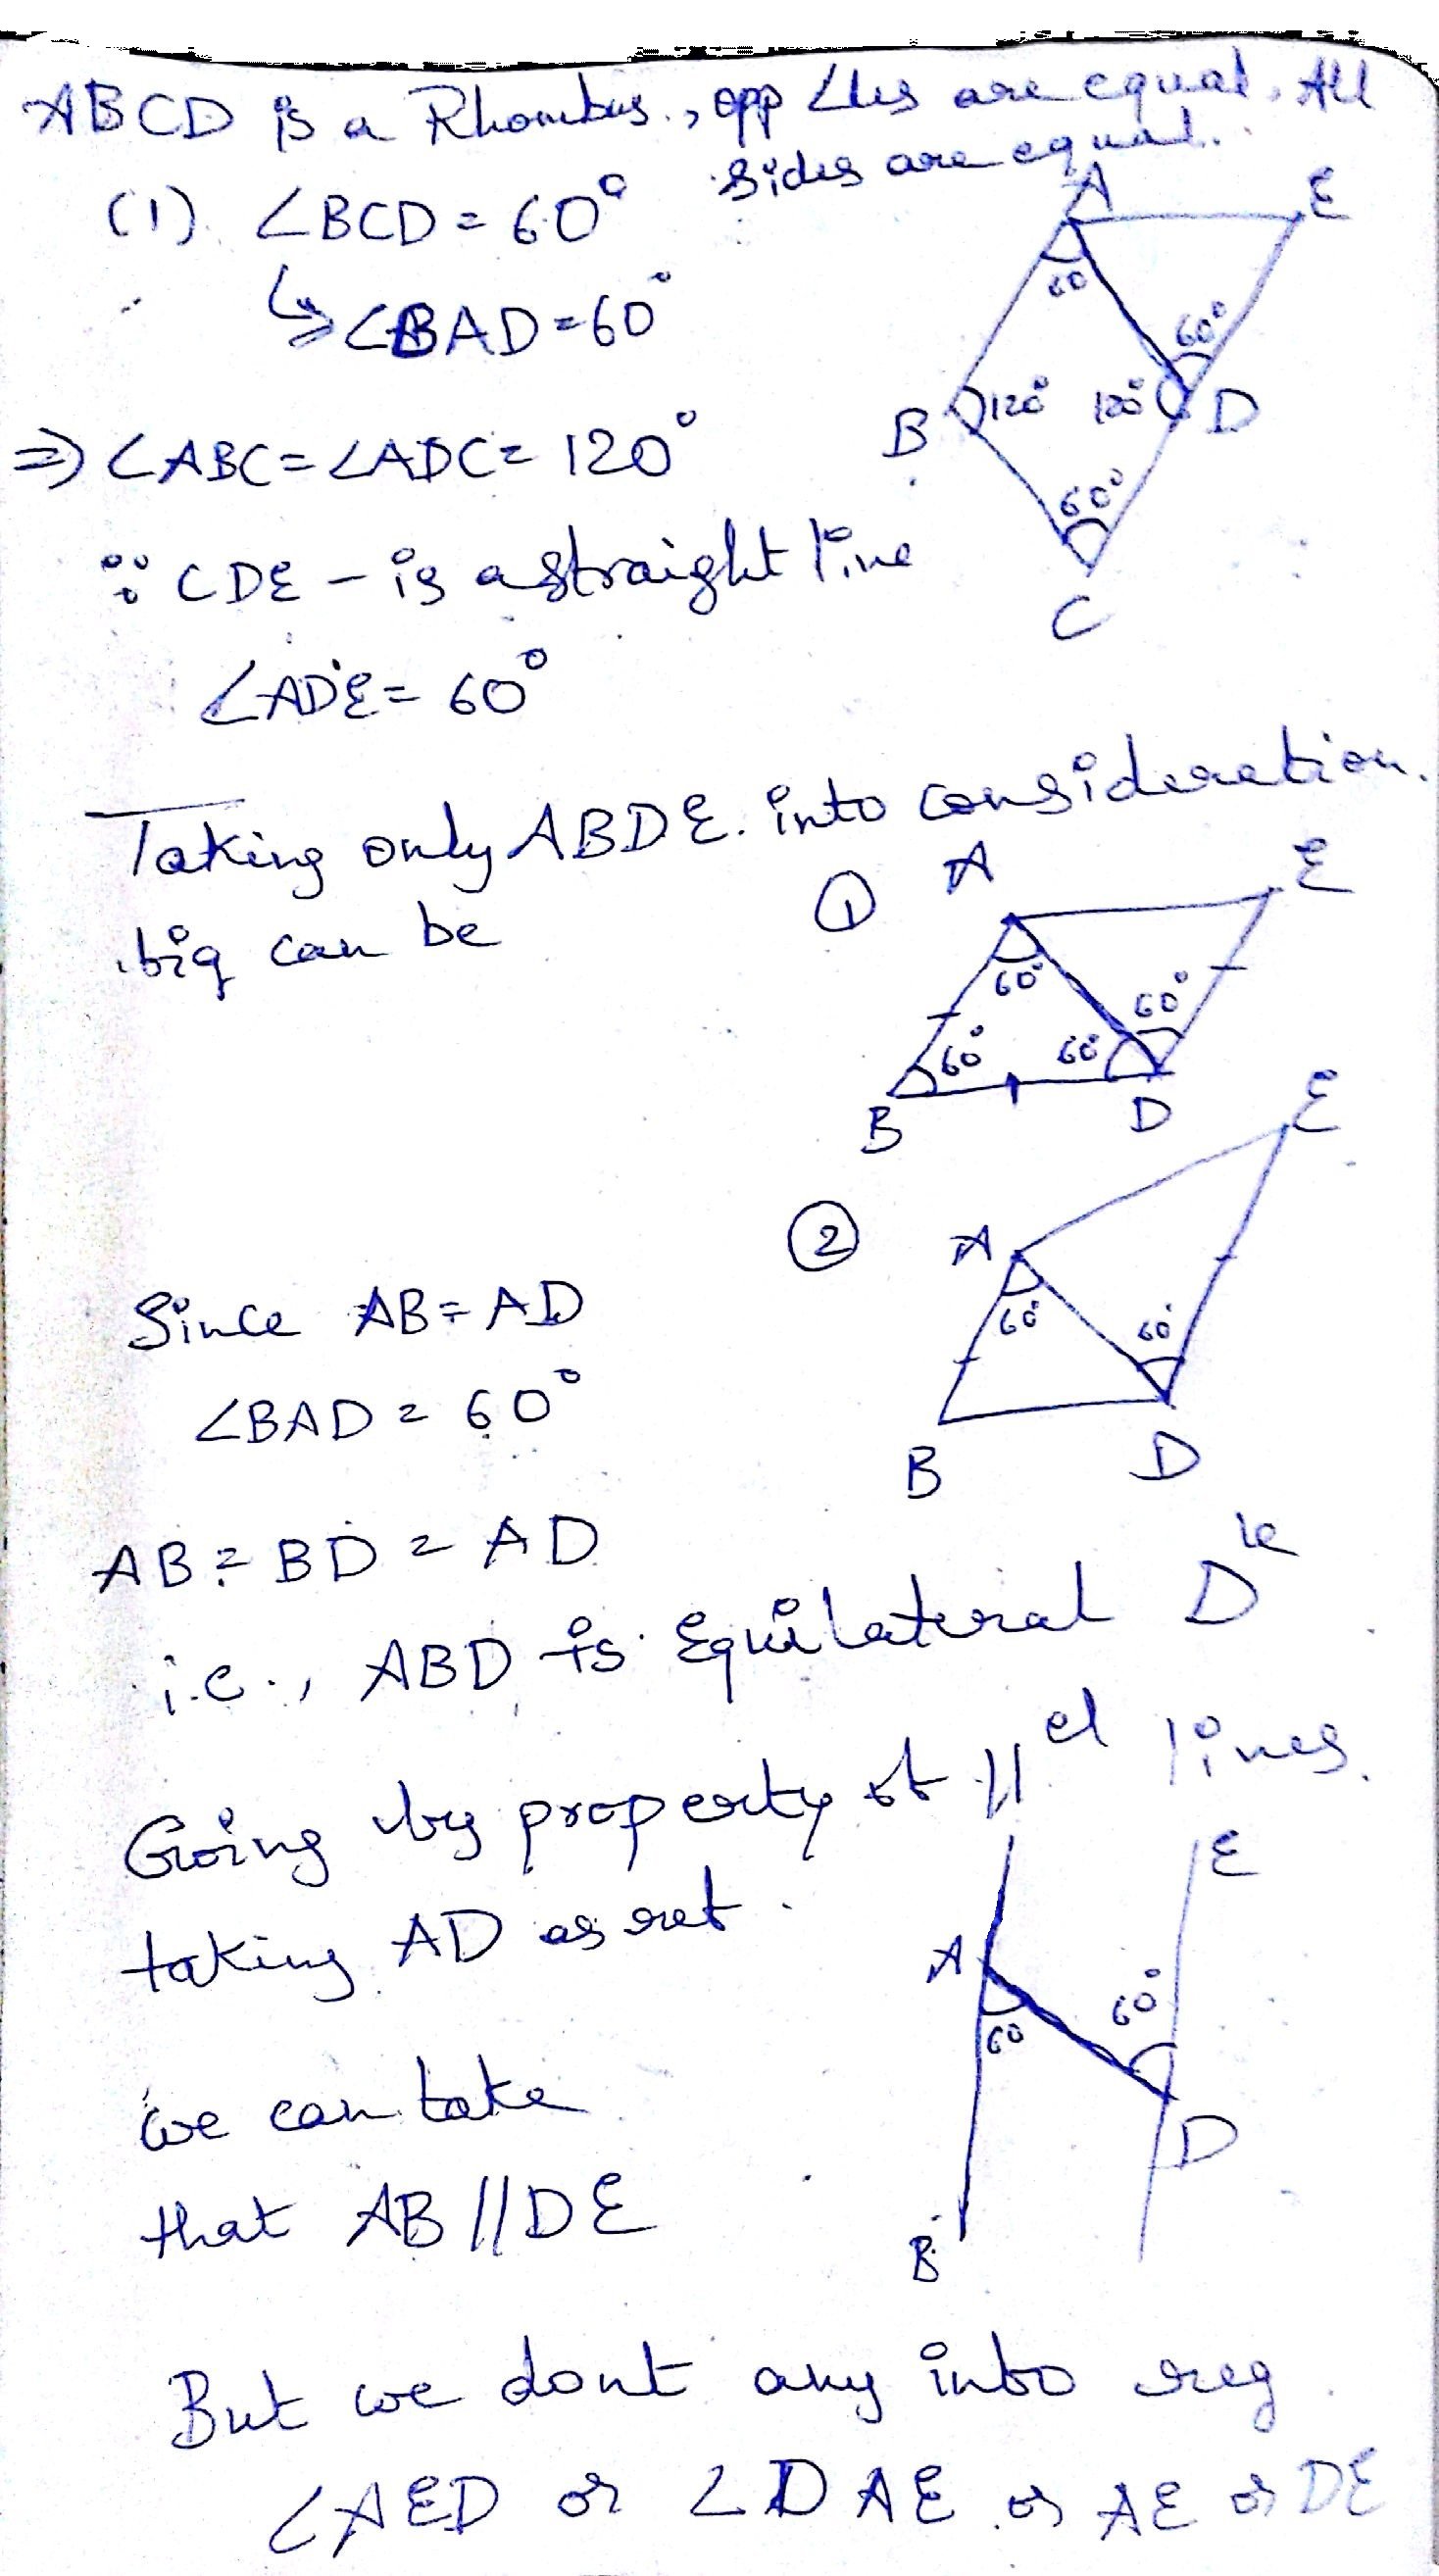 ABCD is a Rhombus., opp ∠les are equal. All
sides are equal.
(1) ∠BCD = 60°
A E
↳ ∠BAD = 60°
60
60°
⇒ ∠ABC = ∠ADC = 120°
B 120° 120° D
60°
∵ CDE - is a straight line
C
∠ADE = 60°
Taking only ABDE. into consideration.
fig can be
① A E
60° 60°
60° 60°
B D
② A E
60° 60°
B D
Since AB = AD
∠BAD = 60°
AB = BD = AD
i.e., ABD is Equilateral Dle
Going by property of ||el lines.
taking AD as ref.
E
A 60°
60
D
B
we can take
that AB || DE
But we dont any info reg.
∠AED or ∠DAE or AE or DE